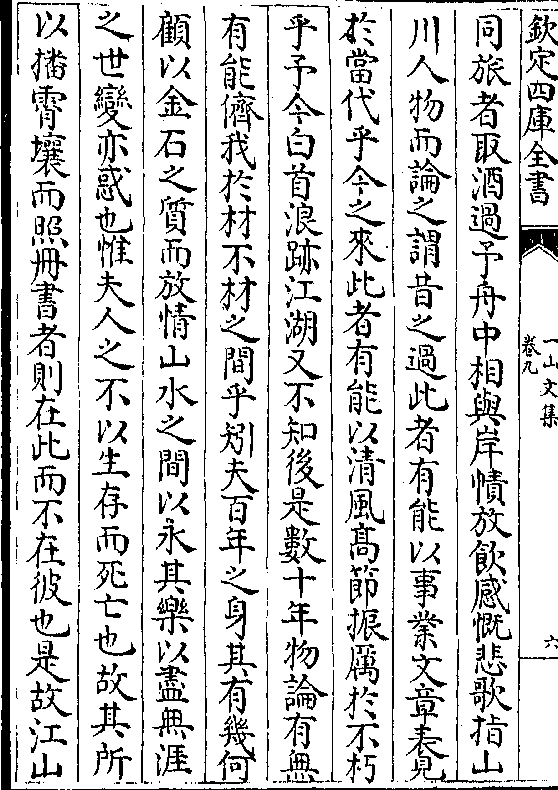 欽定四庫全書
一山文集
卷九
六
同旅者取酒過予舟中相與岸幘放飲感慨悲歌指山
川人物而論之謂昔之過此者有能以事業文章表見
於當代乎今之來此者有能以清風高節振厲於不朽
乎予今白首浪跡江湖又不知後是數十年物論有無
有能儕我於材不材之間乎矧夫百年之身其有幾何
顧以金石之質而放情山水之間以永其樂以盡無涯
之世變亦惑也惟夫人之不以生存而死亡也故其所
以播霄壤而照冊書者則在此而不在彼也是故江山